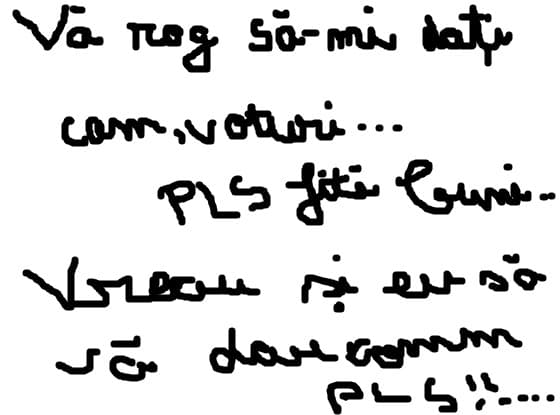 Vă rog să-mi dați
com, voturi...
PLS fiți buni...
Vreau și eu să
vă dau comm
PLS!!....